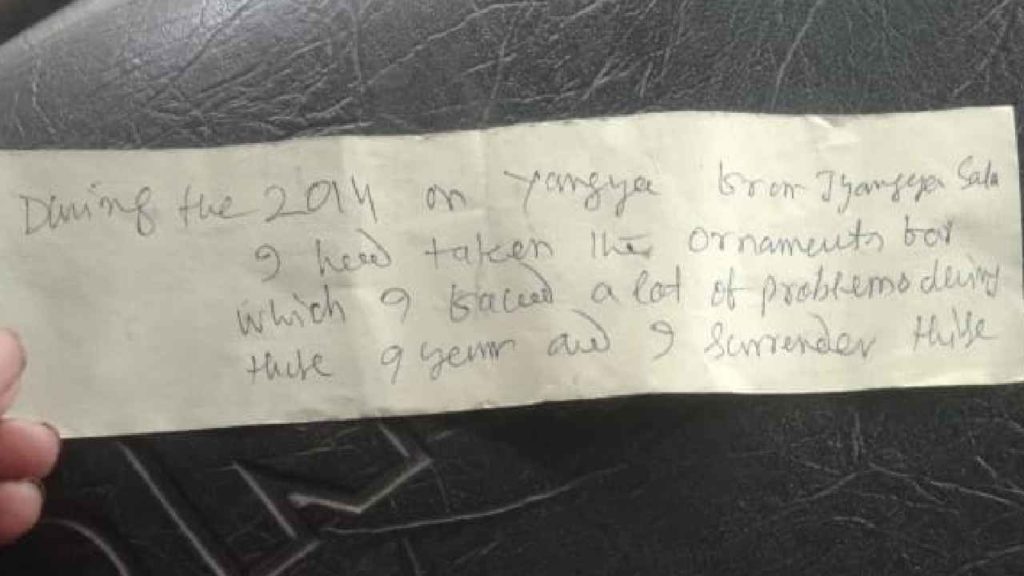 During the 2014 on yangya from Jyangya Sala
I had taken the ornaments box
which I faced a lot of problems during
these 9 year and I surrender these